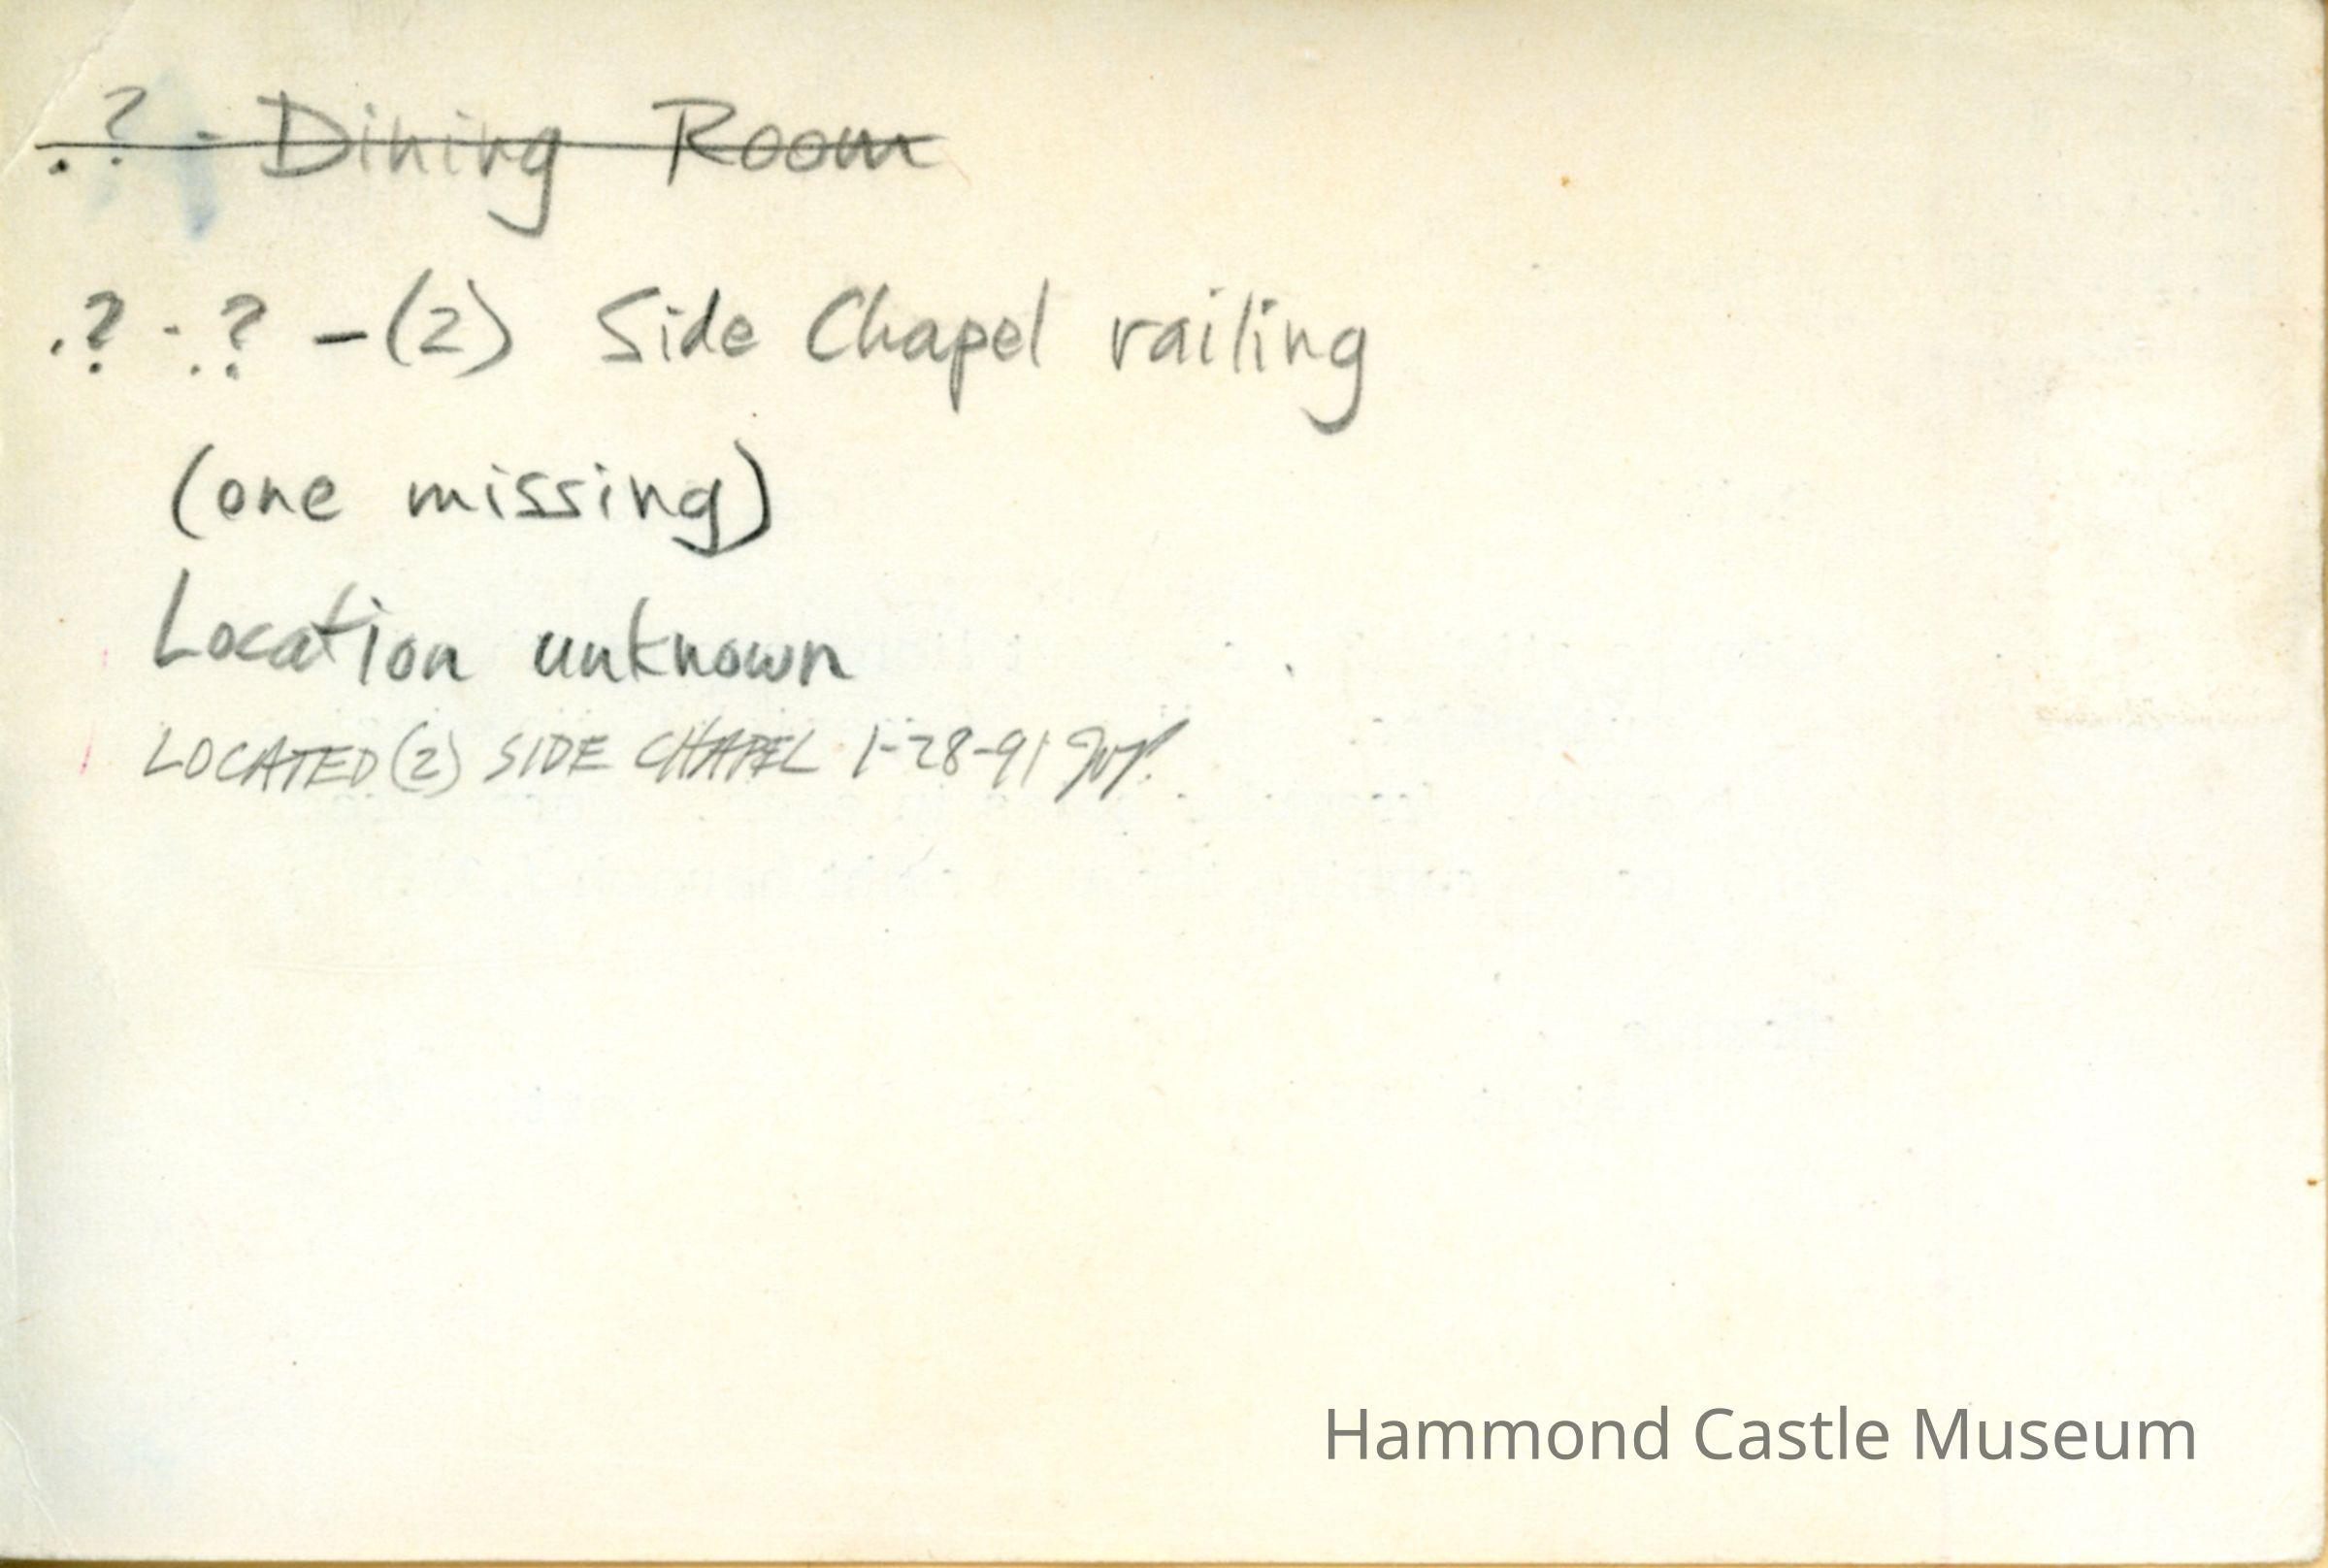 .? - Dining Room
.? - .? - (2) Side Chapel railing
(one missing)
Location unknown
LOCATED (2) SIDE CHAPEL 1-28-91
Hammond Castle Museum